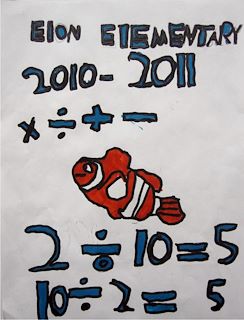 EION ELEMENTARY
2010-2011
× ÷ + -
2÷10=5
10÷2=5